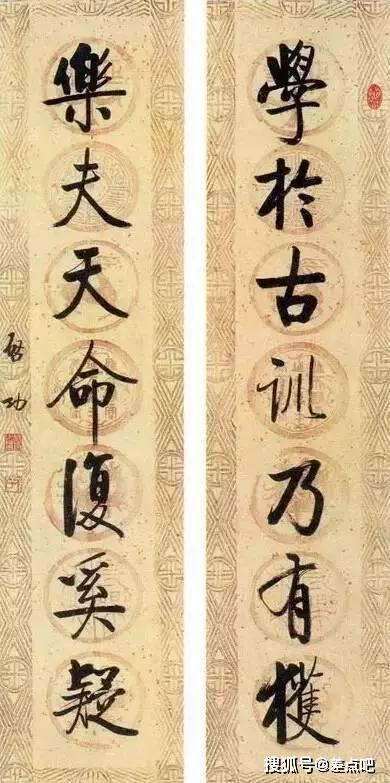 學於古訓乃有獲
樂夫天命復奚疑
启功
搜狐号@差点吧